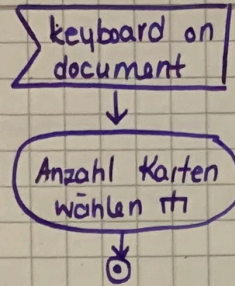 keyboard on
document
Anzahl Karten
wählen